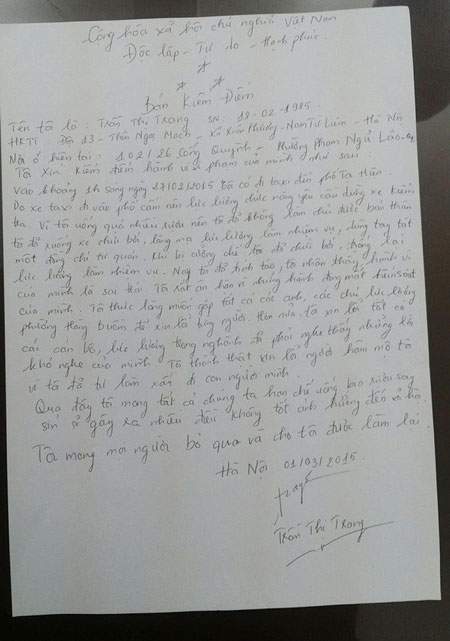 Cộng hòa xã hội chủ nghĩa Việt Nam
Độc lập - Tự do - Hạnh phúc.
Bản Kiểm Điểm
Tên tôi là: Trần Thị Trang SN: 18-02-1985.
HKTT Đội 13 - Thôn Ngọc Mạch - Xã Xuân Phương - Nam Từ Liêm - Hà Nội
Nơi ở hiện tại: 102/26 Cống Quỳnh - Phường Phạm Ngũ Lão
Tôi xin kiểm điểm hành vi vi phạm của mình như sau:
Vào khoảng 1h sáng ngày 27/02/2015 tôi có đi taxi đến phố Tạ Hiện.
Do xe taxi đi vào phố cấm nên lực lượng chức năng yêu cầu dừng xe kiểm
tra. Vì tôi uống quá nhiều rượu nên tôi đã không làm chủ được bản thân
tôi đã xuống xe chửi bới, lăng mạ lực lượng làm nhiệm vụ, dùng tay tát
một đồng chí tự quản. Khi bị cưỡng chế tôi đã chửi bới, chống lại
lực lượng làm nhiệm vụ. Nay tôi đã tỉnh táo, tôi nhận thấy hành vi
của mình là sai trái. Tôi rất ân hận vì những hành động mất kiểm soát
của mình. Tôi thực lòng muốn gặp tất cả các anh, các chú lực lượng
phường Hàng Buồm để xin lỗi từng người. Hơn nữa tôi xin lỗi tất cả
các cán bộ, lực lượng trong nghành đã phải nghe thấy những lời
khó nghe của mình. Tôi thành thật xin lỗi người hâm mộ tôi
vì tôi đã tự làm xấu đi con người mình.
Qua đây tôi mong tất cả chúng ta hạn chế uống bia rượu say
sỉn sẽ gây ra nhiều điều không tốt ảnh hưởng đến xã hội.
Tôi mong mọi người bỏ qua và cho tôi được làm lại.
Hà Nội 01/03/2015
Trần Thị Trang